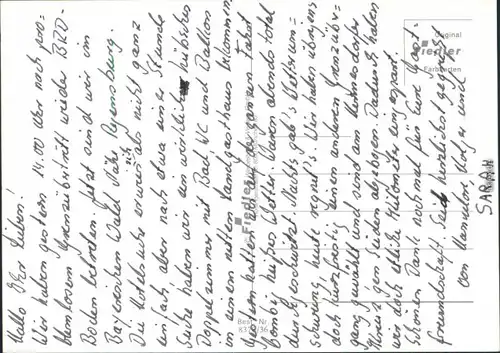 Hallo Ihr Lieben!
Wir haben gestern 14.00 Uhr nach pro-
blemlosem Grenzübertritt wieder BRD-
Boden betreten. Jetzt sind wir im
Bayerischen Wald Nähe Regensburg.
Die Hotelsuche erwies sich nicht ganz
einfach, aber nach etwa einer Stunde
Suche haben wir ein wirklich hübsches
Doppelzimmer mit Bad WC und Balkon
in einem netten Landgasthaus bekommen.
Gestern hatten wir auf der ganzen Fahrt
heißes Wetter, waren abends total
durchgeschwitzt. Nachts gab's Wetterum-
schwung, heute regnet's. Wir haben übrigens
doch einen anderen Grenzüber-
gang gewählt und sind am
Kreuz gen Süden abgebogen. Dadurch haben
wir doch etliche Kilometer eingespart.
Schönen Dank nochmal für Eure Gast-
freundschaft. Seid herzlichst gegrüßt
von und
SARAH
Original
Fiedler
Farbkarten
Best. Nr.